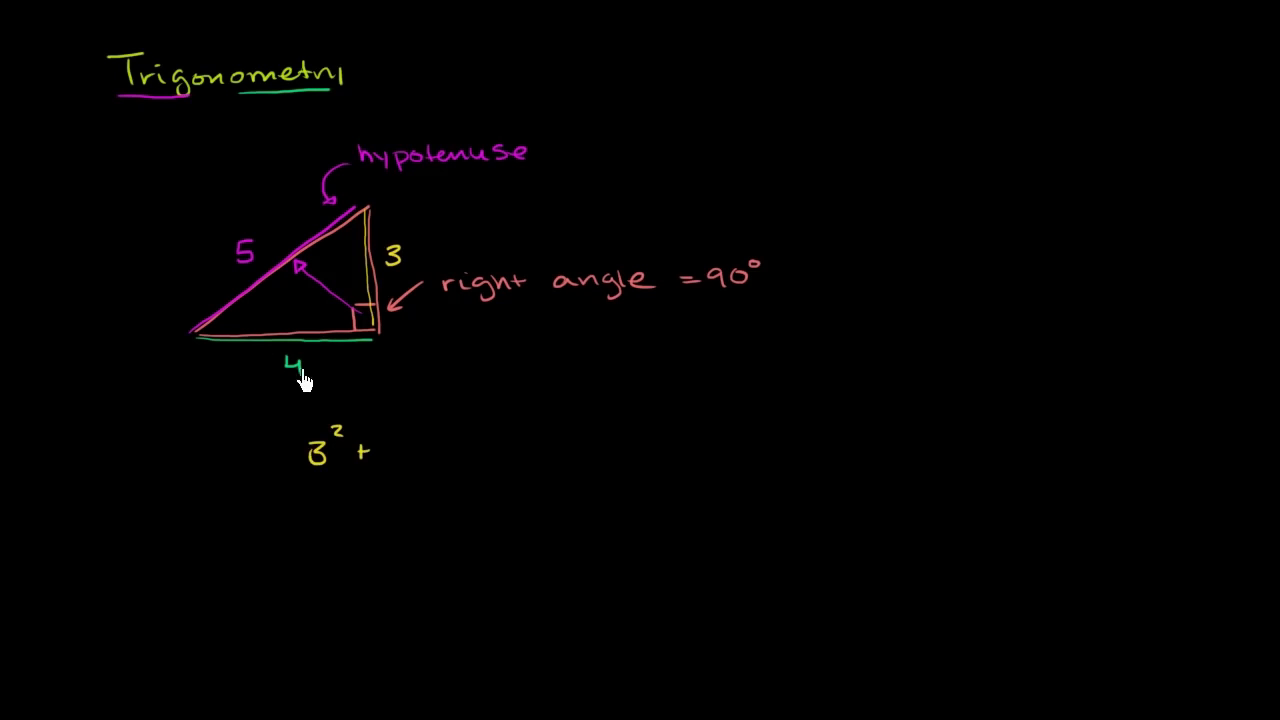 Trigonometry
hypotenuse
5
3
right angle = 90°
4
3² +